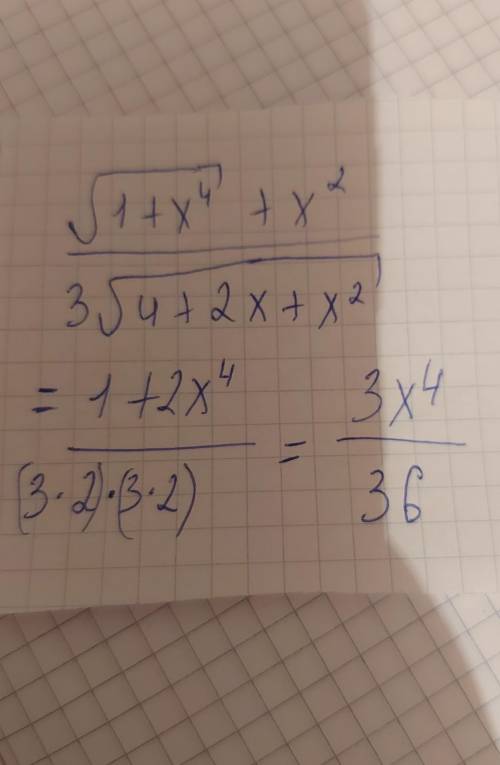 √(1+x⁴) + x²
3√(4+2x+x²)
= 1+2x⁴ / (3·2)·(3·2) = 3x⁴ / 36